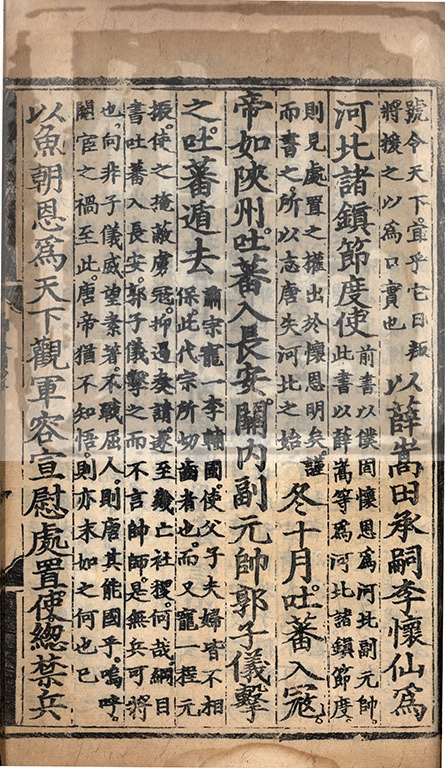 號令天下。宜乎它日叛
將援之以為口實也
以薛嵩田承嗣李懷仙爲
河北諸鎮節度使
前書以僕固懷恩爲河北副元帥。
此書以薛嵩等爲河北諸鎮節度。
則見處置之權出於懷恩明矣。謹
而書之。所以志唐失河北之始
冬十月。吐蕃入寇。
帝如陝州。吐蕃入長安。關内副元帥郭子儀擊
之。吐蕃遁去
肅宗寵一李輔國。使父子夫婦皆不相
保。此代宗所切齒者也而又寵一程元
振。使之掩蔽虜寇。抑遏奏請。遂至幾亡社稷。何哉。綱目
書吐蕃入長安。郭子儀擊之。而不言帥師。是無兵可將
也。向非子儀威望素著。不戰屈人。則唐其能國乎。嗚呼。
閹宦之禍至此。唐帝猶不知悟。則亦末如之何也已
以魚朝恩爲天下觀軍容宣慰處置使總禁兵